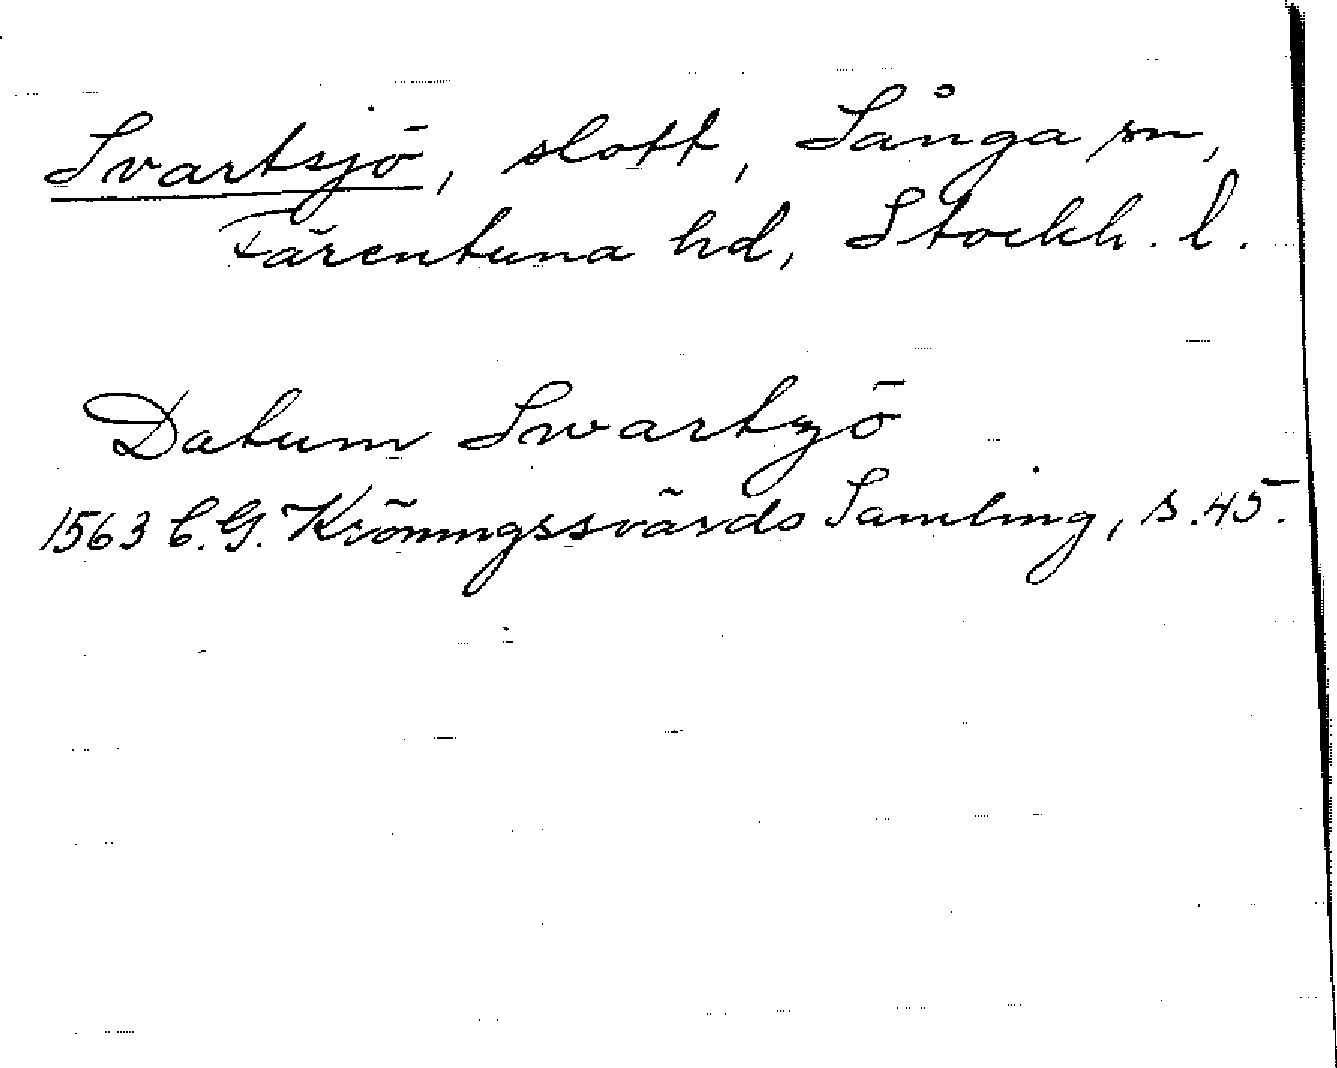 Svartsjö, slott, Sånga sn,
Färentuna hd, Stockh. l.
Datum Swartzjö
1563 C.G. Kröningssvärds Samling, s. 45.